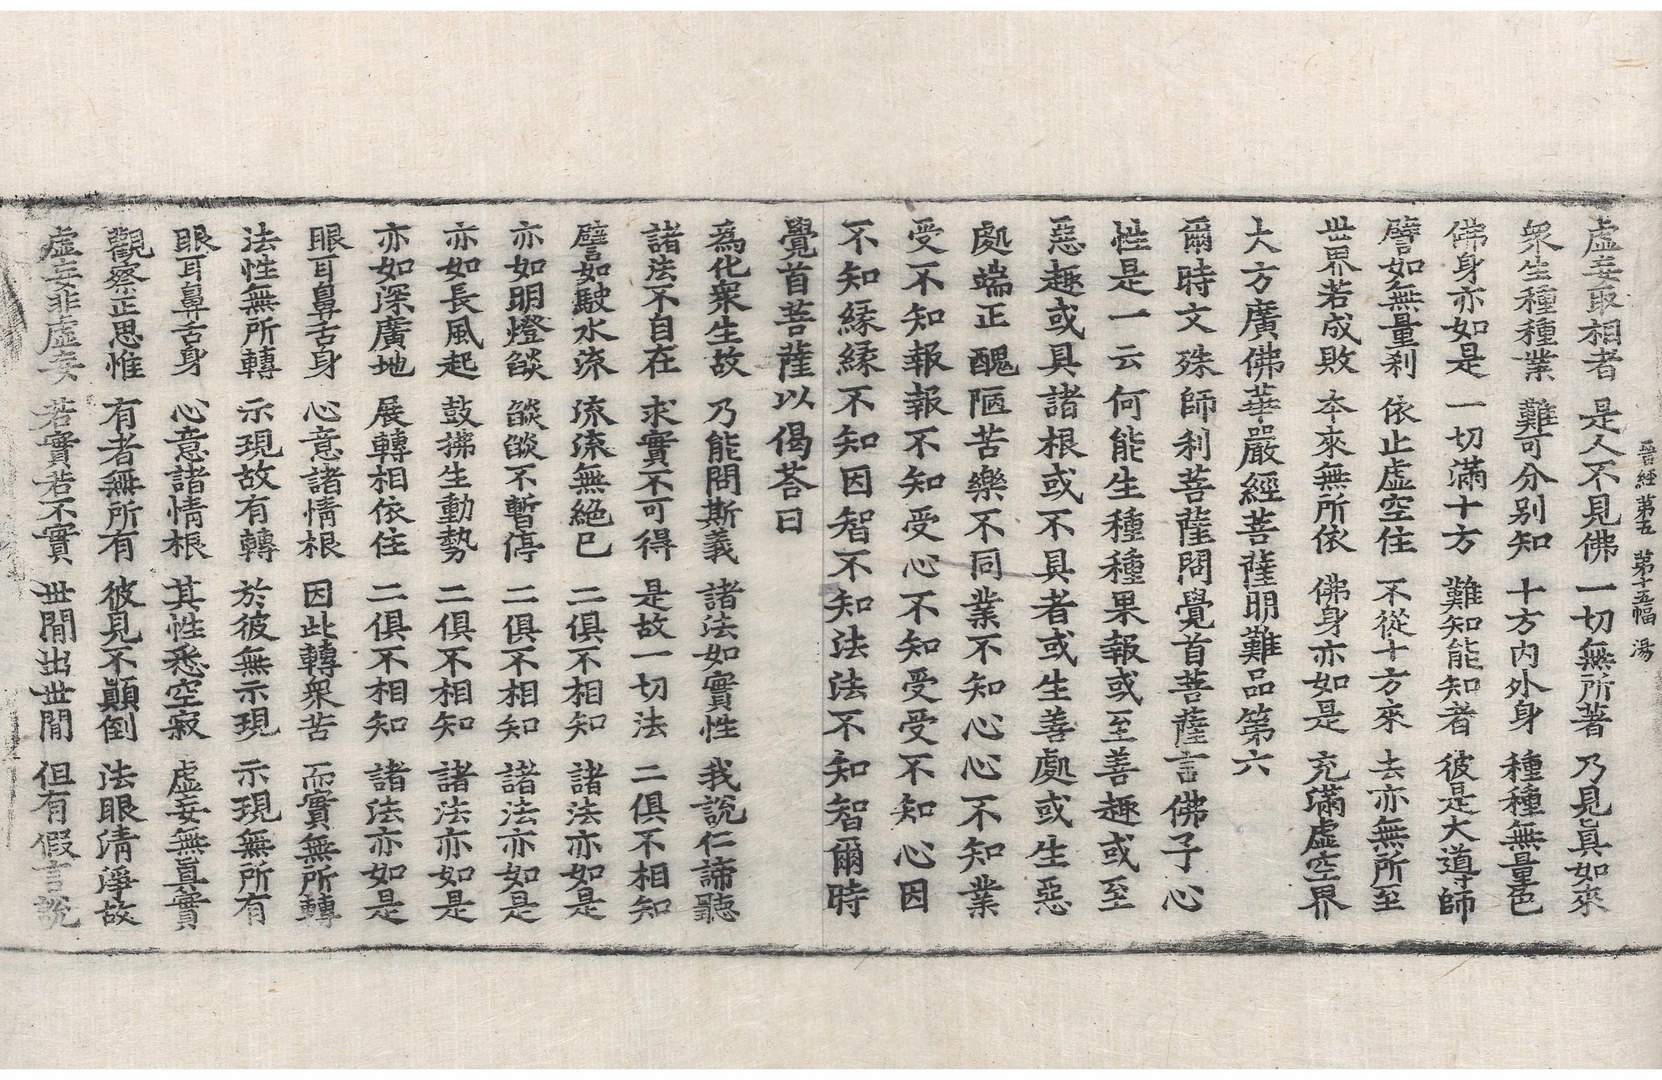 晉經第五　第十五幅　湯
虛妄取相者　是人不見佛　一切無所著　乃見眞如來
衆生種種業　難可分別知　十方內外身　種種無量色
佛身亦如是　一切滿十方　難知能知者　彼是大導師
譬如無量刹　依止虛空住　不從十方來　去亦無所至
世界若成敗　本來無所依　佛身亦如是　充滿虛空界
大方廣佛華嚴經菩薩明難品第六
爾時文殊師利菩薩問覺首菩薩言佛子心
性是一云何能生種種果報或至善趣或至
惡趣或具諸根或不具者或生善處或生惡
處端正醜陋苦樂不同業不知心心不知業
受不知報報不知受心不知受受不知心因
不知緣緣不知因智不知法法不知智爾時
覺首菩薩以偈荅曰
爲化衆生故　乃能問斯義　諸法如實性　我說仁諦聽
諸法不自在　求實不可得　是故一切法　二俱不相知
譬如駛水流　流流無絕已　二俱不相知　諸法亦如是
亦如明燈焰　焰焰不暫停　二俱不相知　諸法亦如是
亦如長風起　鼓拂生動勢　二俱不相知　諸法亦如是
亦如深廣地　展轉相依住　二俱不相知　諸法亦如是
眼耳鼻舌身　心意諸情根　因此轉衆苦　而實無所轉
法性無所轉　示現故有轉　於彼無示現　示現無所有
眼耳鼻舌身　心意諸情根　其性悉空寂　虛妄無眞實
觀察正思惟　有者無所有　彼見不顚倒　法眼清淨故
虛妄非虛妄　若實若不實　世閒出世閒　但有假言說